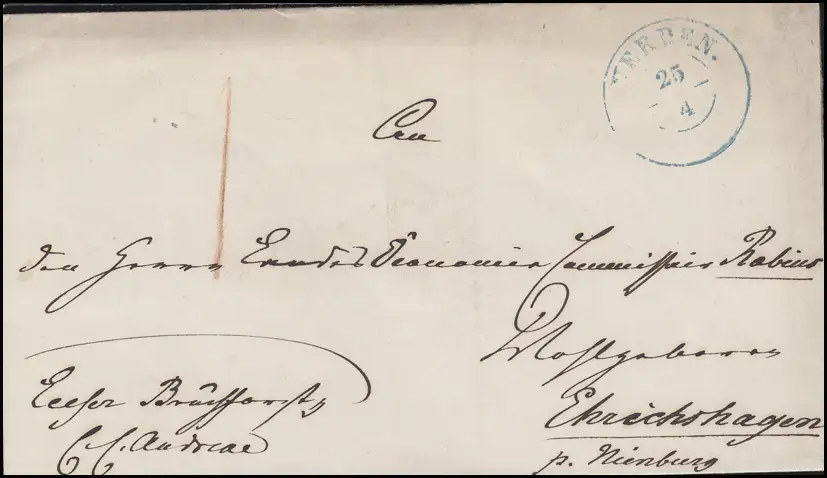 VERDEN.
25
4
An
den Herrn Landes Öconomie Commissair Rabius
Wohlgeboren
Ehrichshagen
p. Nienburg
C. C. Andreae